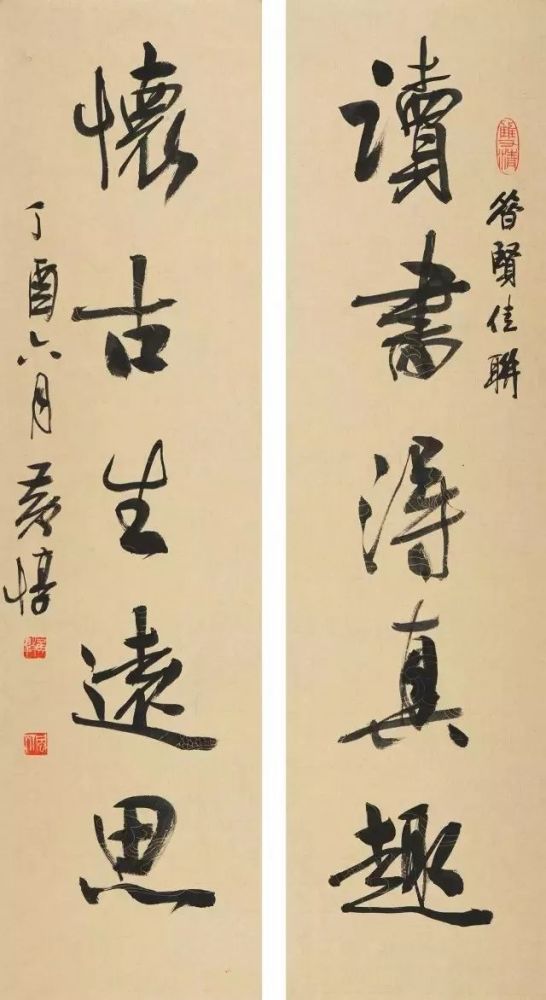 讀書得真趣
昝賢佳聯
懷古生遠思
丁酉六月
黃惇